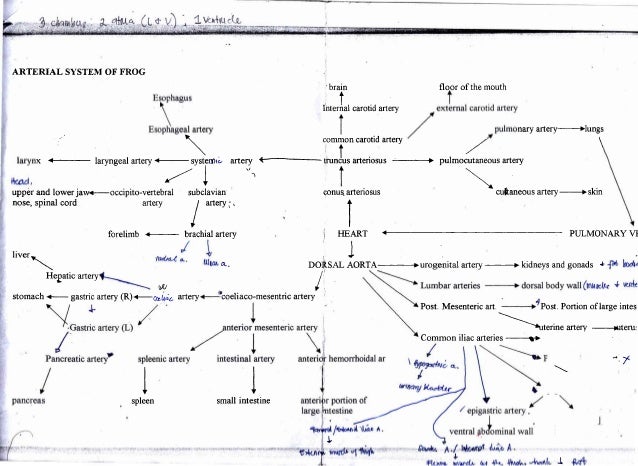 3 chambers: 2 atria (L & V) ; 1 ventricle
ARTERIAL SYSTEM OF FROG
brain
floor of the mouth
Esophagus
Internal carotid artery
external carotid artery
Esophageal artery
common carotid artery
pulmonary artery
lungs
larynx
laryngeal artery
systemic artery
truncus arteriosus
pulmocutaneous artery
Head,
upper and lower jaw
nose, spinal cord
occipito-vertebral
artery
subclavian
artery
conus arteriosus
cutaneous artery
skin
forelimb
brachial artery
HEART
PULMONARY
radial a.
ulnar a.
liver
DORSAL AORTA
urogenital artery
kidneys and gonads
Hepatic artery
Lumbar arteries
dorsal body wall (muscle
stomach
gastric artery (R)
coeliac artery
coeliaco-mesentric artery
Post. Mesenteric art.
Post. Portion of large intes
Gastric artery (L)
anterior mesenteric artery
uterine artery
uterus
Common iliac arteries
Pancreatic artery
spleenic artery
intestinal artery
anterior hemorrhoidal ar
F
hypogastric a.
urinary bladder
pancreas
spleen
small intestine
anterior portion of
large intestine
epigastric artery
Femoral / External iliac A.
ventral abdominal wall
External muscle of thigh
Sciatic A. / Internal iliac A.